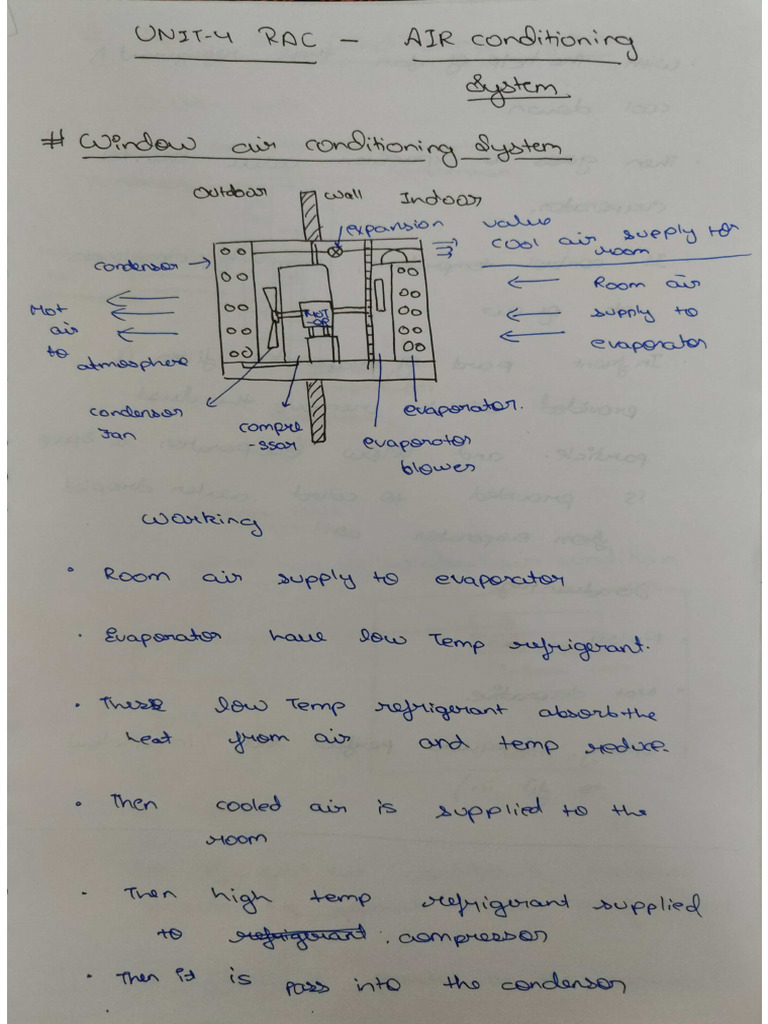 UNIT-4 RAC - AIR conditioning
System
# Window air conditioning System
Outdoor Wall Indoor
expansion value
cool air supply for
room
condensor →
Room air
supply to
evaporator
Hot
air
to
atmosphere
MOT
OR
condensor
Fan
compre
-ssor
evaporator
blower
evaporator.
Working
• Room air supply to evaporator
• Evaporator have low Temp refrigerant.
• These low Temp refrigerant absorb the
heat from air and temp reduce.
• Then cooled air is supplied to the
room
• Then high temp refrigerant supplied
to refrigerant. compressor
• Then it is pass into the condensor